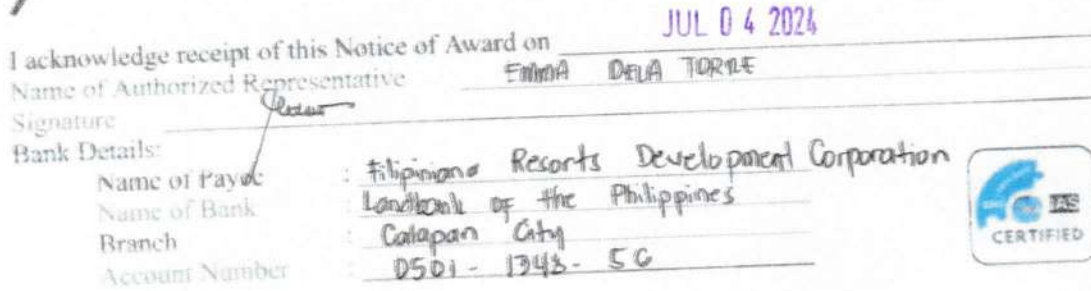 JUL 04 2024
I acknowledge receipt of this Notice of Award on
Name of Authorized Representative EMMA DELA TORRE
Signature
Bank Details:
Name of Payee : Filipiniana Resorts Development Corporation
Name of Bank : Landbank of the Philippines
Branch : Calapan City
Account Number : 0501-1343-56
CERTIFIED